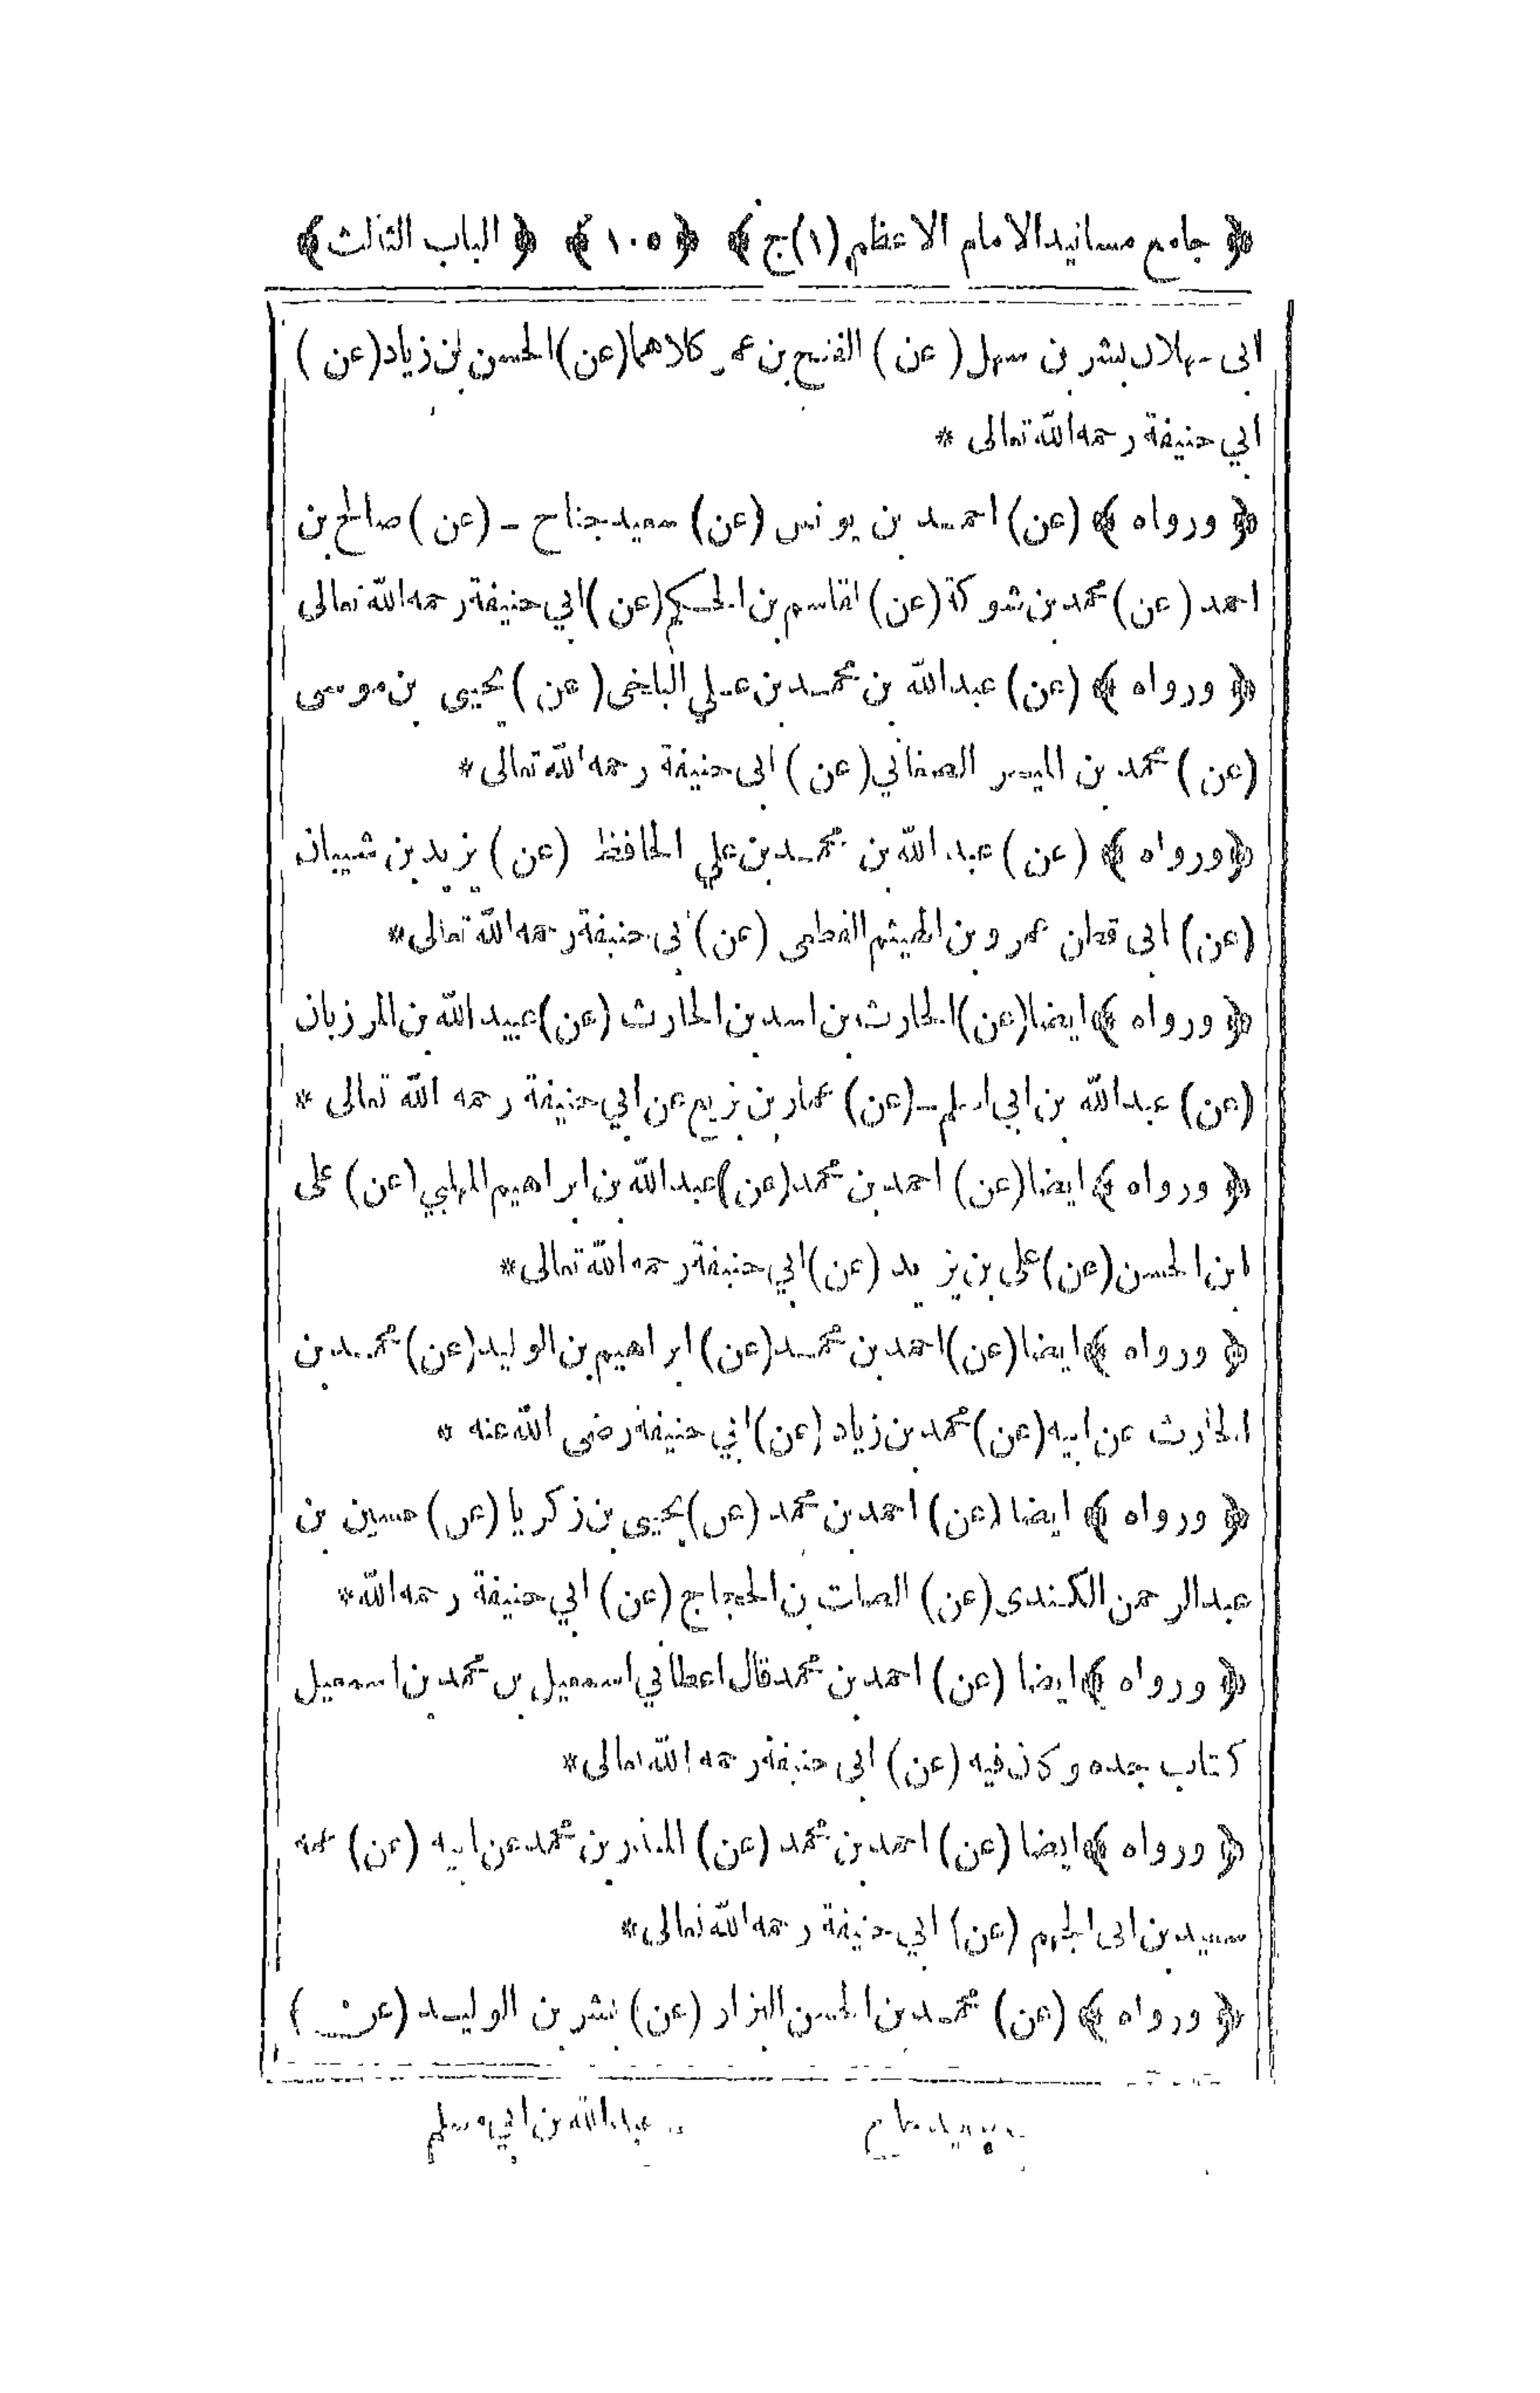 ﴿ جامع مسانيد الامام الاعظم (١) ج ﴾ ﴿ ١٠٥ ﴾ ﴿ الباب الثالث ﴾
ابى هلال بشر بن سهل ( عن ) الفتح بن عمر كلاهما (عن) الحسن بن زياد (عن )
ابي حنيفة رحمه الله تعالى *
﴿ ورواه ﴾ (عن) احمد بن يونس (عن) سعيد جناح - (عن) صالح بن
احمد (عن) محمد بن شوكة (عن) القاسم بن الحكم (عن) ابي حنيفة رحمه الله تعالى
﴿ ورواه ﴾ (عن) عبد الله بن محمد بن علي البلخى (عن) يحيى بن موسى
(عن) محمد بن الميسر الصغاني (عن) ابى حنيفة رحمه الله تعالى *
﴿ ورواه ﴾ (عن) عبد الله بن محمد بن علي الحافظ (عن) يزيد بن شيبان
(عن) ابى قطن عمرو بن الهيثم القطعى (عن) ابى حنيفة رحمه الله تعالى *
﴿ ورواه ﴾ ايضا (عن) الحارث بن اسد بن الحارث (عن) عبيد الله بن المرزبان
(عن) عبد الله بن ابي اسلم - (عن) عمار بن بزيع عن ابي حنيفة رحمه الله تعالى *
﴿ ورواه ﴾ ايضا (عن) احمد بن محمد (عن) عبد الله بن ابراهيم المهلبي (عن) على
ابن الحسن (عن) على بن يزيد (عن) ابي حنيفة رحمه الله تعالى *
﴿ ورواه ﴾ ايضا (عن) احمد بن محمد (عن) ابراهيم بن الوليد (عن) محمد بن
الحارث عن ابيه (عن) محمد بن زياد (عن) ابي حنيفة رضى الله عنه *
﴿ ورواه ﴾ ايضا (عن) احمد بن محمد (عن) يحيى بن زكريا (عن) حسين بن
عبد الرحمن الكندى (عن) الصلت بن الحجاج (عن) ابي حنيفة رحمه الله *
﴿ ورواه ﴾ ايضا (عن) احمد بن محمد قال اعطاني اسمعيل بن محمد بن اسمعيل
كتاب جده وكان فيه (عن) ابى حنيفة رحمه الله تعالى *
﴿ ورواه ﴾ ايضا (عن) احمد بن محمد (عن) المنذر بن محمد عن ابيه (عن) عمه
سعيد بن ابى الجهم (عن) ابي حنيفة رحمه الله تعالى *
﴿ ورواه ﴾ (عن) محمد بن الحسن البزار (عن) بشر بن الوليد (عن)
عبد الله بن ابي مسلم